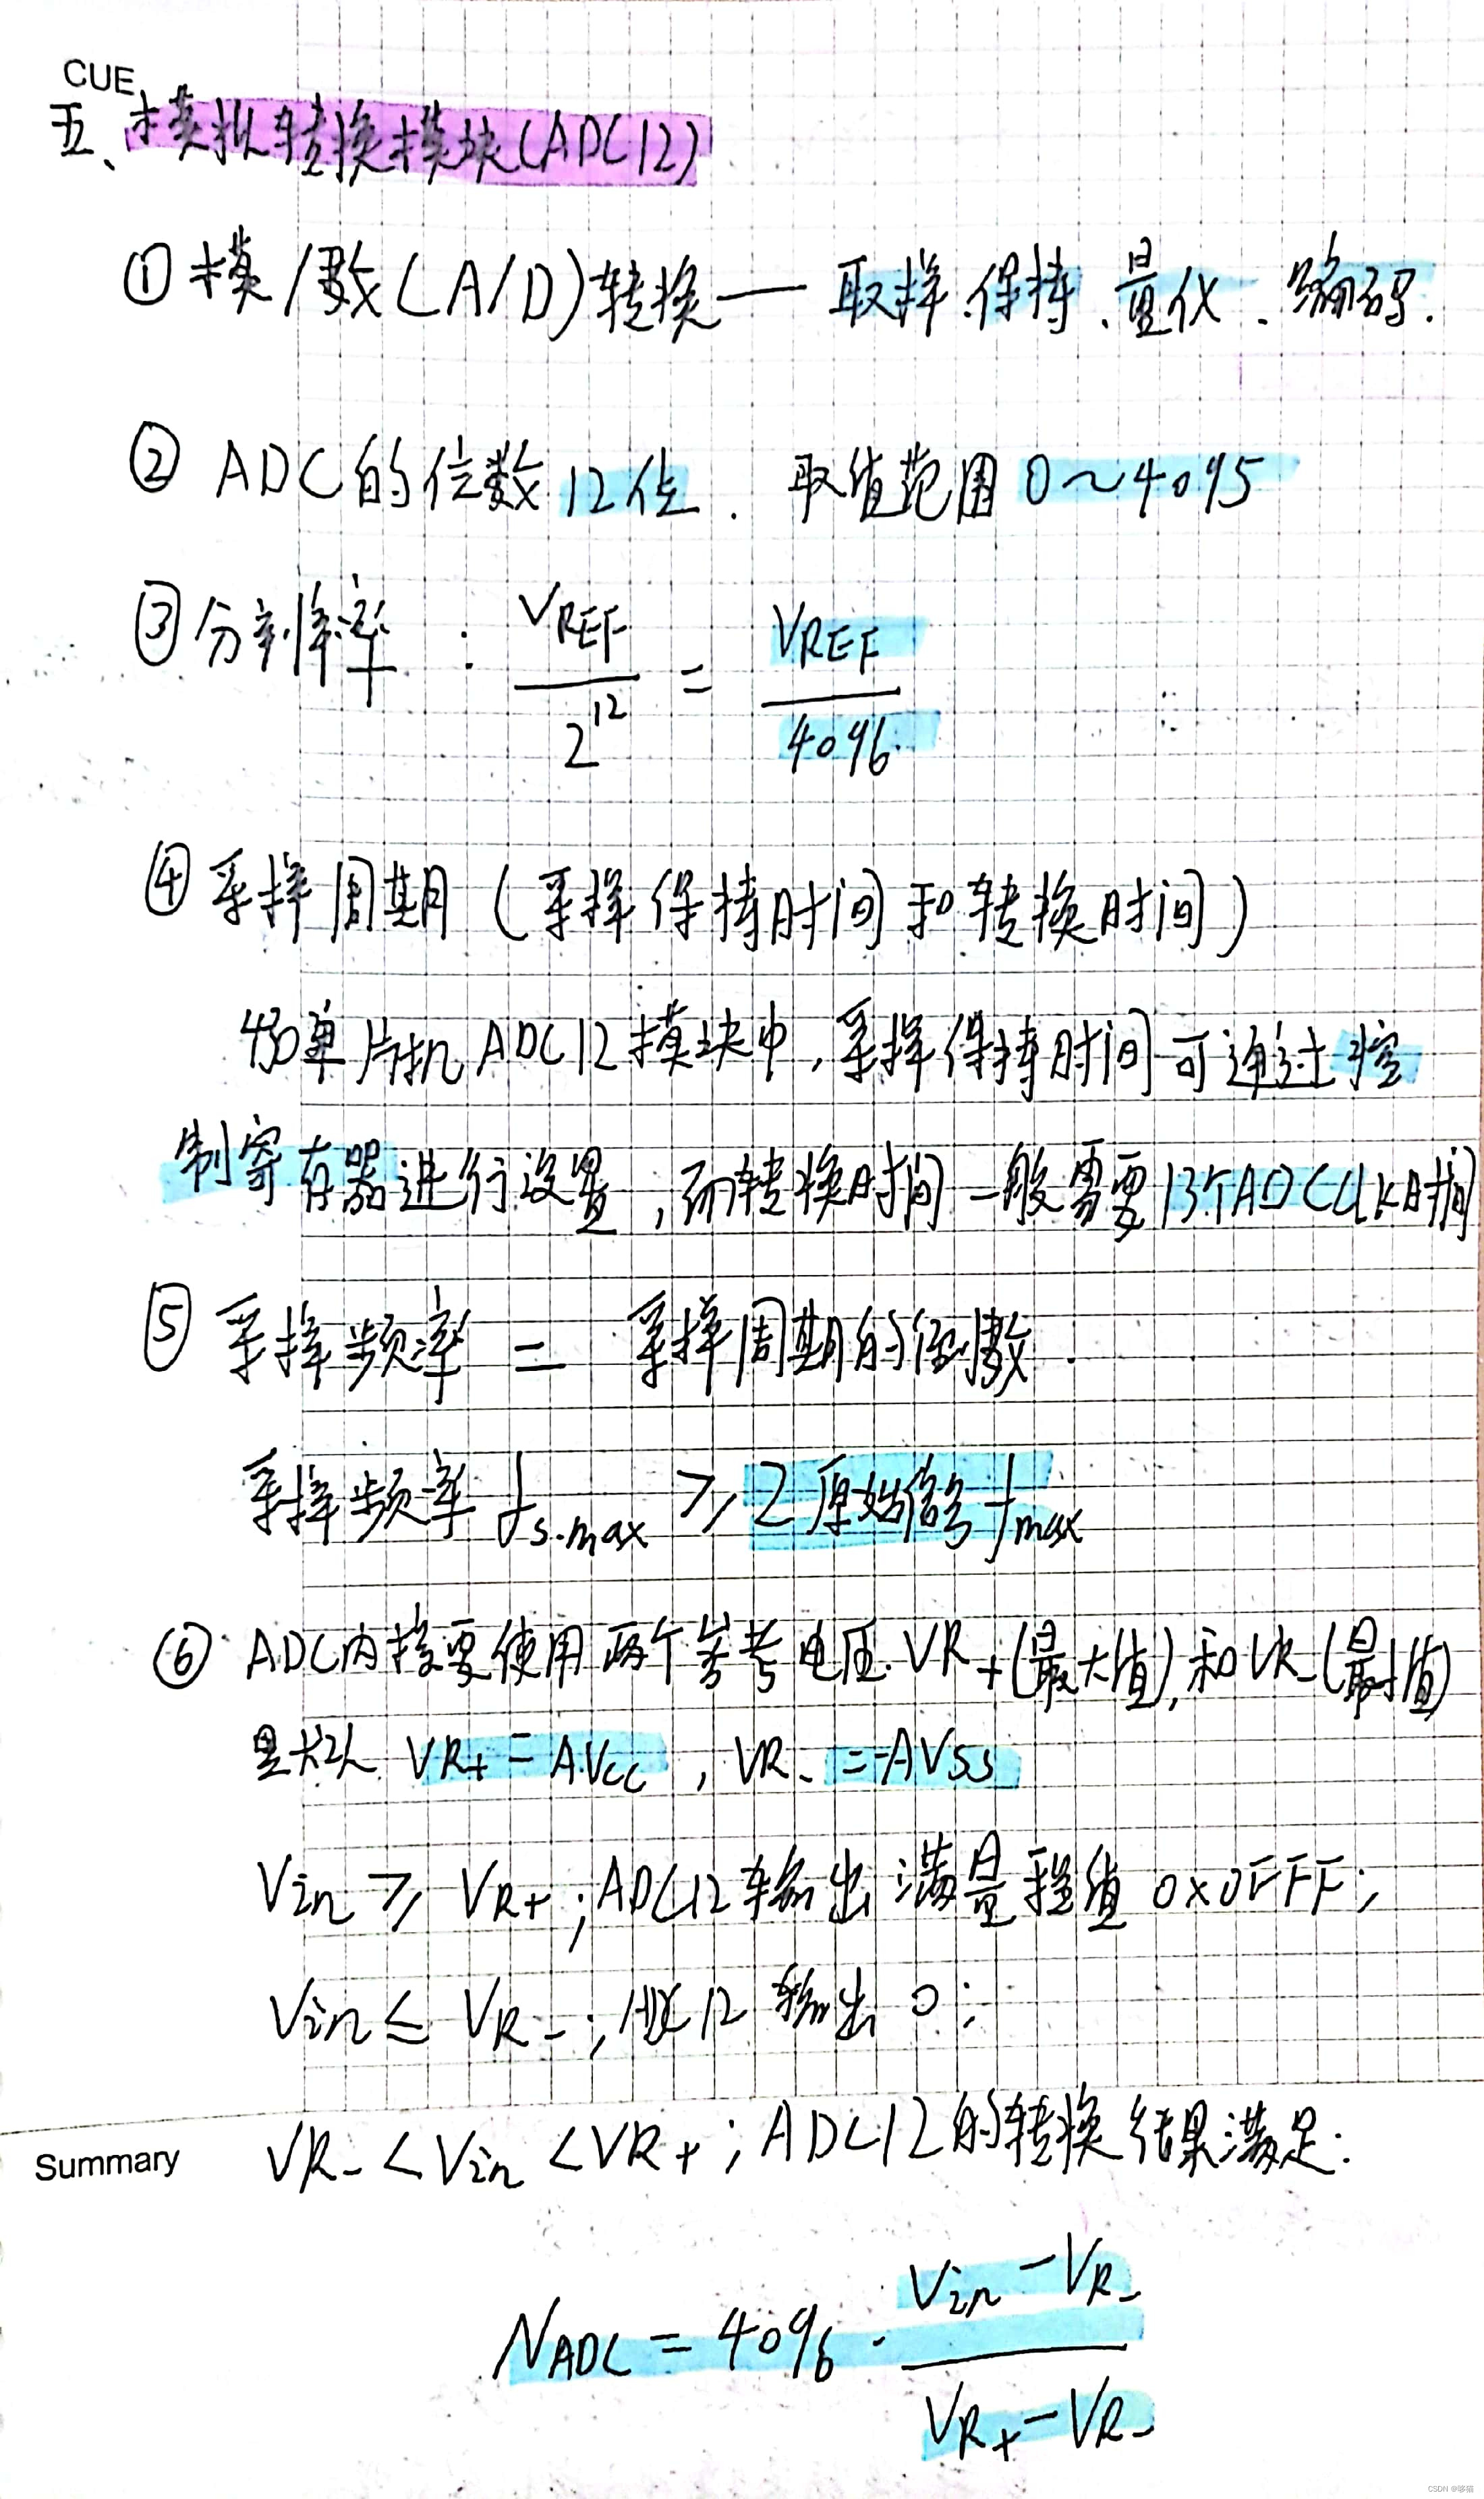 CUE
五、模拟转换模块(ADC12)
① 模/数(A/D)转换—— 取样、保持、量化、编码.
② ADC的位数12位. 取值范围0~4095
③ 分辨率: VREF/2^12 = VREF/4096.
④ 采样周期(采样保持时间和转换时间)
430单片机ADC12模块中,采样保持时间可通过控
制寄存器进行设置,而转换时间一般需要13个ADCCLK时间
⑤ 采样频率 = 采样周期的倒数.
采样频率 fs.max ≥ 2原始信号fmax
⑥ ADC内核要使用两个参考电压.VR+(最大值),和VR-(最小值)
默认 VR+ = AVcc , VR- = AVss
Vin ≥ VR+;ADC12输出满量程值0x0FFF;
Vin ≤ VR-;ADC12 输出 0;
Summary
VR- < Vin < VR+;ADC12的转换结果满足:
NADC = 4096 · (Vin - VR-)/(VR+ - VR-)
CSDN @哆猫